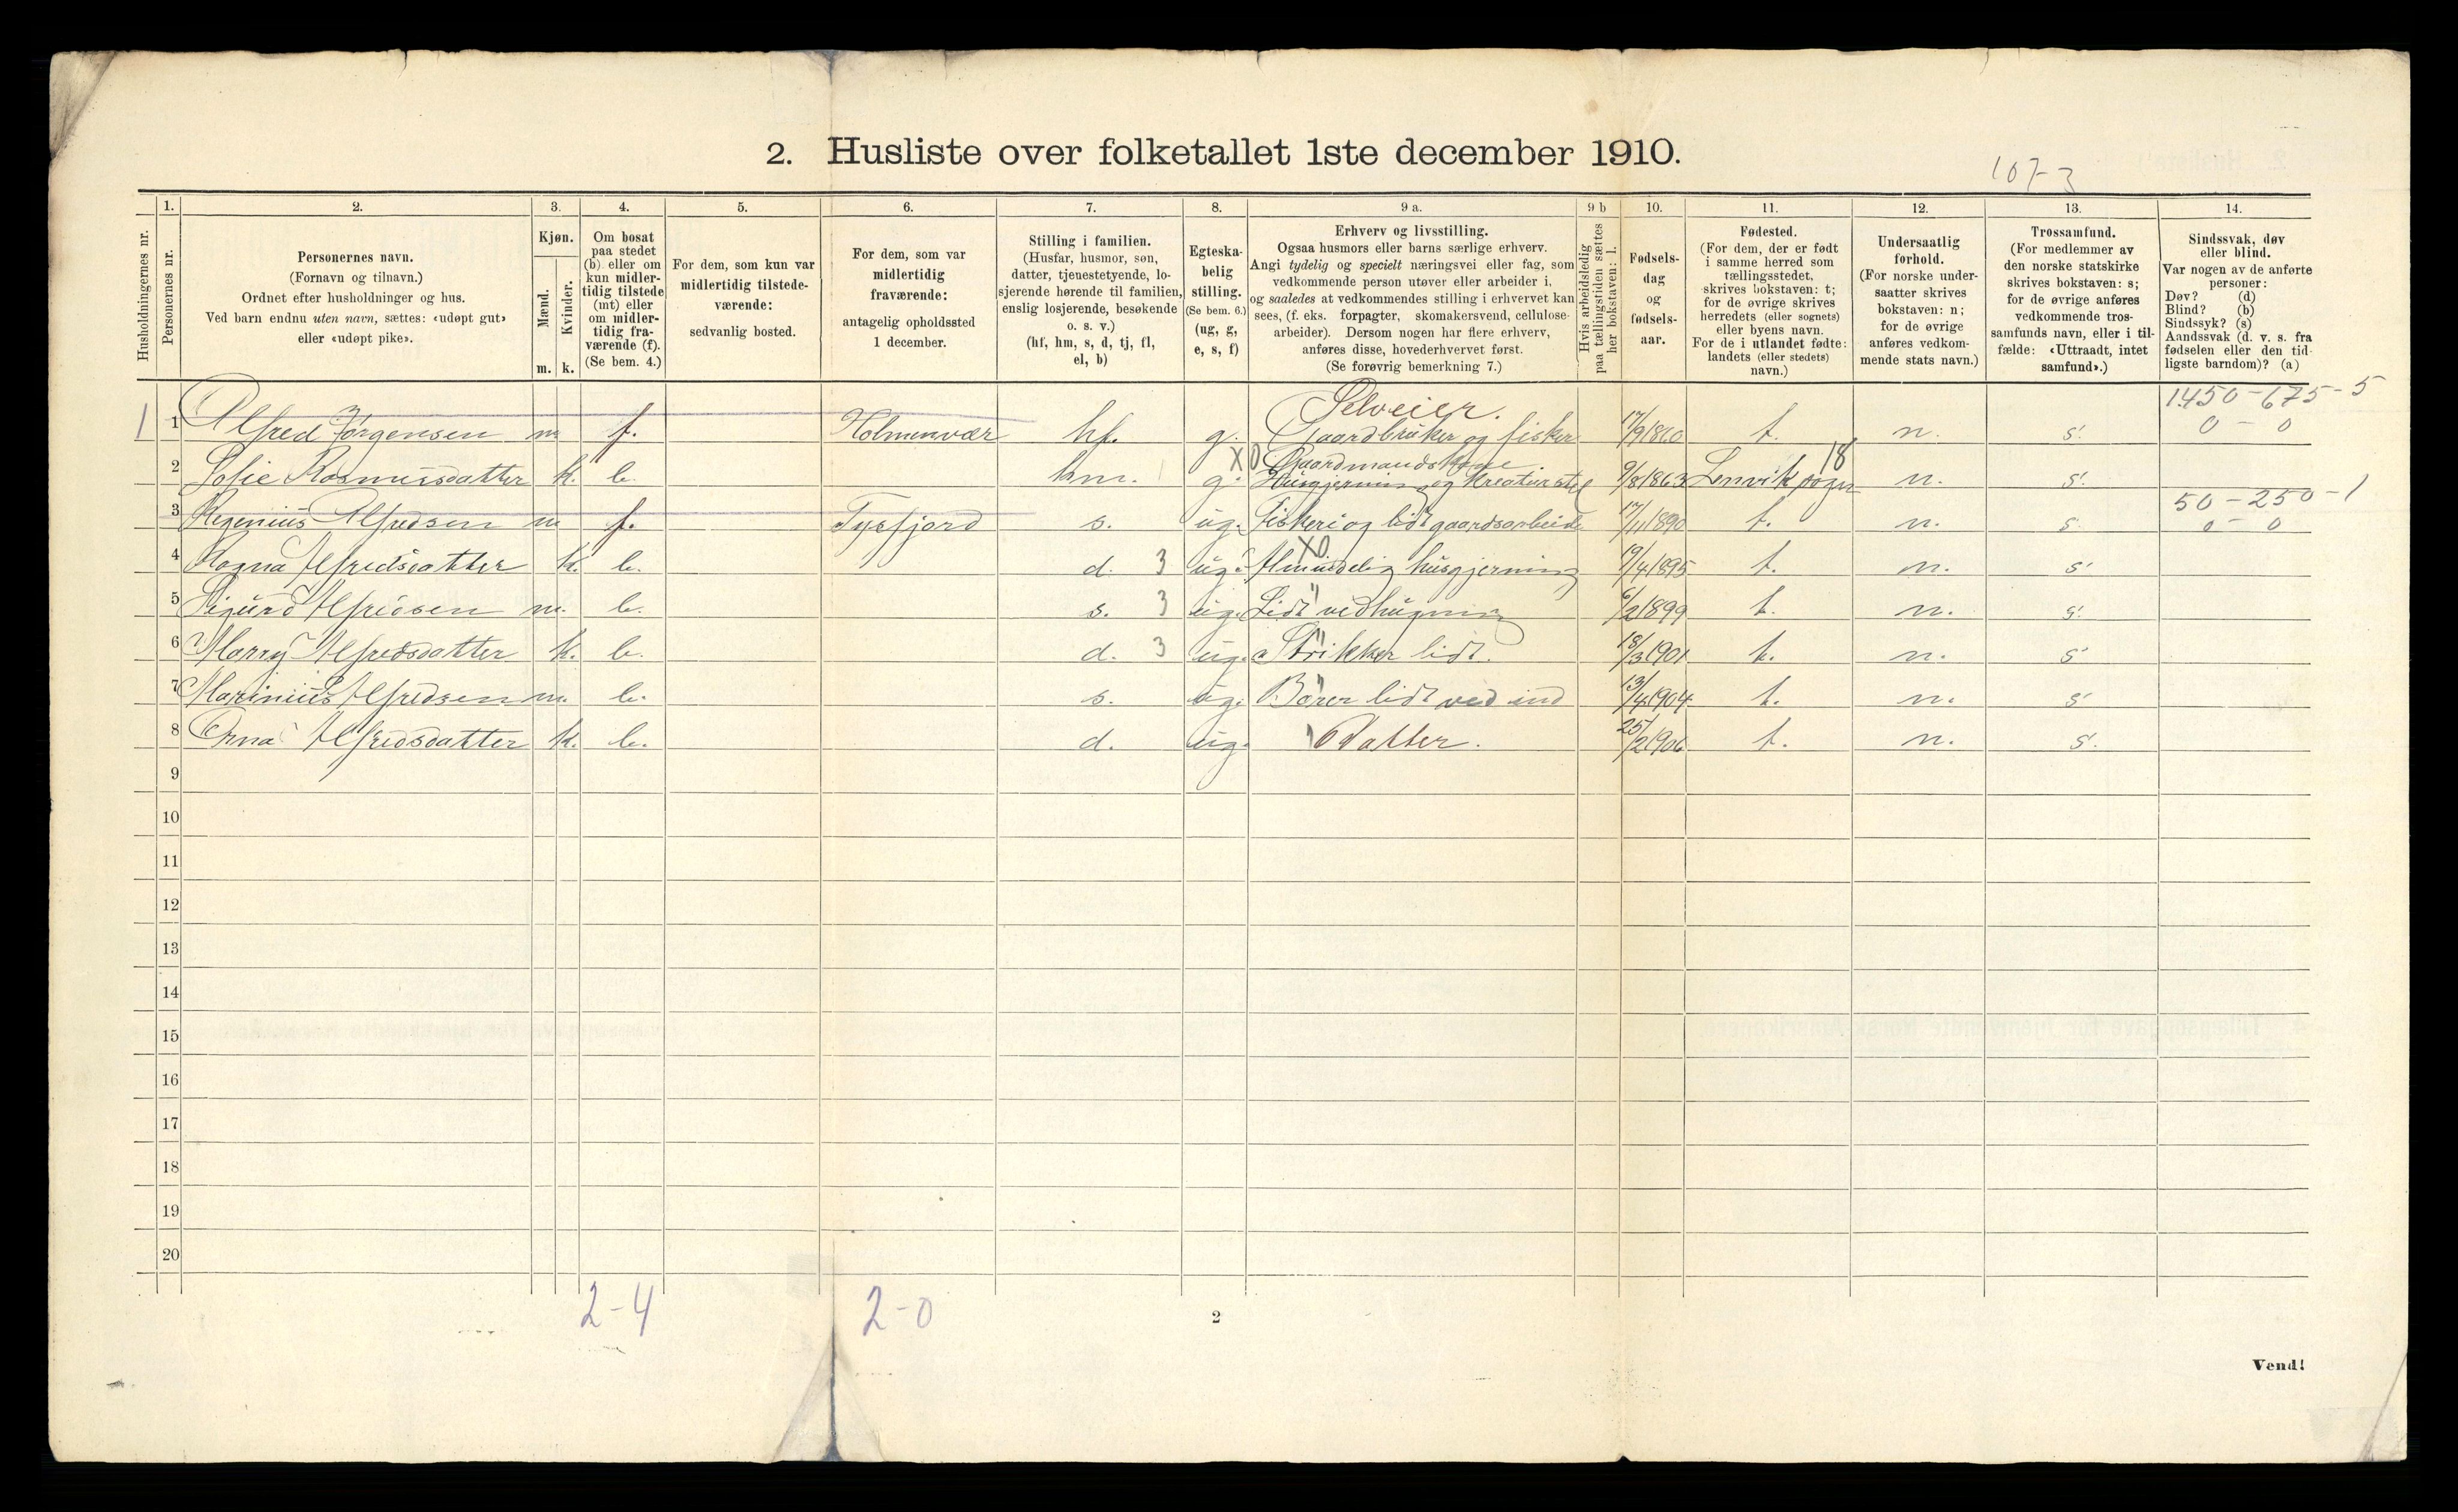 2. Husliste over folketallet 1ste december 1910.
107-3
Husholdningernes nr.
1.
Personernes nr.
2.
Personernes navn.
(Fornavn og tilnavn.)
Ordnet efter husholdninger og hus.
Ved barn endnu uten navn, sættes: «udøpt gut»
eller «udøpt pike».
3.
Kjøn.
Mænd.
Kvinder.
m. k.
4.
Om bosat
paa stedet
(b) eller om
kun midler-
tidig tilstede
(mt) eller
om midler-
tidig fra-
værende (f).
(Se bem. 4.)
5.
For dem, som kun var
midlertidig tilstede-
værende:
sedvanlig bosted.
6.
For dem, som var
midlertidig
fraværende:
antagelig opholdssted
1 december.
7.
Stilling i familien.
(Husfar, husmor, søn,
datter, tjenestetyende, lo-
sjerende hørende til familien,
enslig losjerende, besøkende
o. s. v.)
(hf, hm, s, d, tj, fl,
el, b)
8.
Egteska-
belig
stilling.
(Se bem. 6.)
(ug, g,
e, s, f)
9 a.
Erhverv og livsstilling.
Ogsaa husmors eller barns særlige erhverv.
Angi tydelig og specielt næringsvei eller fag, som
vedkommende person utøver eller arbeider i,
og saaledes at vedkommendes stilling i erhvervet kan
sees, (f. eks. forpagter, skomakersvend, cellulose-
arbeider). Dersom nogen har flere erhverv,
anføres disse, hovederhvervet først.
(Se forøvrig bemerkning 7.)
9 b
Hvis arbeidsledig
paa tællingstiden sættes
her bokstaven: l.
10.
Fødsels-
dag
og
fødsels-
aar.
11.
Fødested.
(For dem, der er født
i samme herred som
tællingsstedet,
skrives bokstaven: t;
for de øvrige skrives
herredets (eller sognets)
eller byens navn.
For de i utlandet fødte:
landets (eller stedets)
navn.)
12.
Undersaatlig
forhold.
(For norske under-
saatter skrives
bokstaven: n;
for de øvrige
anføres vedkom-
mende stats navn.)
13.
Trossamfund.
(For medlemmer av
den norske statskirke
skrives bokstaven: s;
for de øvrige anføres
vedkommende tros-
samfunds navn, eller i til-
fælde: «Uttraadt, intet
samfund».)
14.
Sindssvak, døv
eller blind.
Var nogen av de anførte
personer:
Døv? (d)
Blind? (b)
Sindssyk? (s)
Aandssvak (d. v. s. fra
fødselen eller den tid-
ligste barndom)? (a)
Selveier. 1450-675-5
1 1 Alfred Jørgensen m f. Holmenvær hf. g. Gaardbruker og fisker 17/9 1860 t. n. s. 0-0
X0 Gaardmandskone 18
2 Sofie Rasmusdatter k. b. hm. g. Husgjerning og kreaturstel 9/8 1863 Lenvik sogn n. s.
50-250-1
3 Regenius Alfredsen m f. Tysfjord s. ug. Fiskeri og lidt gaardsarbeide 17/11 1890 t. n. s. 0-0
X0
4 Ragna Alfredsdatter k. b. d. 3 ug. Almindelig husgjerning 19/4 1895 t. n. s.
5 Sigurd Alfredsen m. b. s. 3 ug. Lidt vedhugning 6/2 1899 t. n. s.
6 Harry Alfredsdatter k. b. d. 3 ug. Strikker lidt. 18/3 1901 t. n. s
7 Marinius Alfredsen m. b. s. ug. Bærer lidt ved ind 13/4 1904 t. n. s
8 Erna Alfredsdatter k. b. d. ug. Datter. 25/2 1906 t. n. s.
9
10
11
12
13
14
15
16
17
18
19
20
2-4 2-0
2
Vend!